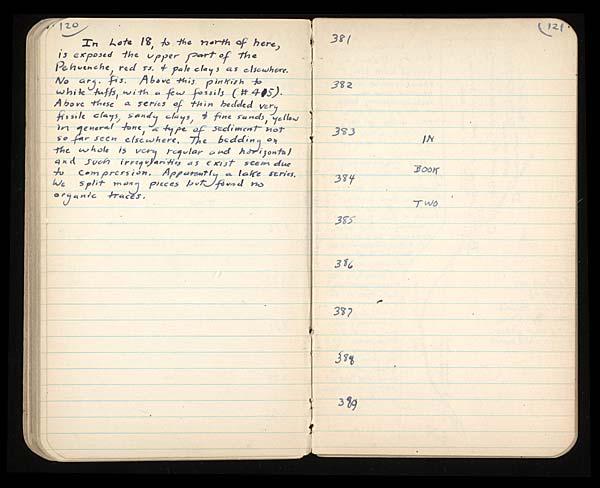 120
In Lote 18, to the north of here,
is exposed the upper part of the
Pehuenche, red ss. & pale clays as elsewhere.
No arg. fis. Above this pinkish to
white tuffs, with a few fossils (#405).
Above these a series of thin bedded very
fissile clays, sandy clays, & fine sands, yellow
in general tone, a type of sediment not
so far seen elsewhere. The bedding on
the whole is very regular and horizontal
and such irregularities as exist seem due
to compression. Apparently a lake series.
We split many pieces but found no
organic traces.
121
381
382
383
IN
BOOK
384
TWO
385
386
387
388
389